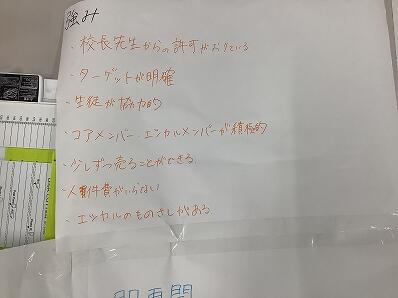 強み
・校長先生からの許可がおりている
・ターゲットが明確
・生徒が協力的
・コアメンバー エシカルメンバーが積極的
・少しずつ売ることができる
・人件費がいらない
・エシカルのものさしがある